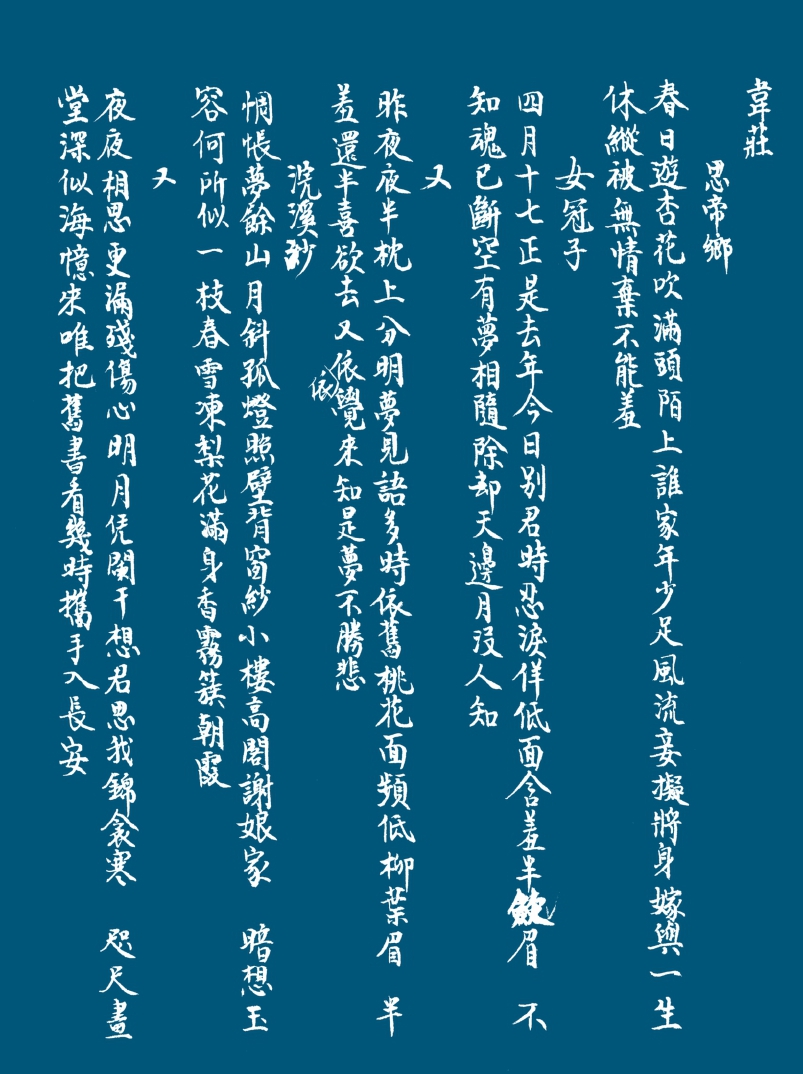 韋莊
思帝鄉
春日遊杏花吹滿頭陌上誰家年少足風流妾擬將身嫁與一生
休縱被無情棄不能羞
女冠子
四月十七正是去年今日别君時忍淚佯低面含羞半斂眉 不
知魂已斷空有夢相隨除却天邊月没人知
又
昨夜夜半枕上分明夢見語多時依舊桃花面頻低柳葉眉 半
羞還半喜欲去又依依覺來知是夢不勝悲
浣溪紗
惆悵夢餘山月斜孤燈照壁背窗紗小樓高閣謝娘家 暗想玉
容何所似一枝春雪凍梨花滿身香霧簇朝霞
又
夜夜相思更漏殘傷心明月凭闌干想君思我錦衾寒 咫尺畫
堂深似海憶來唯把舊書看幾時攜手入長安